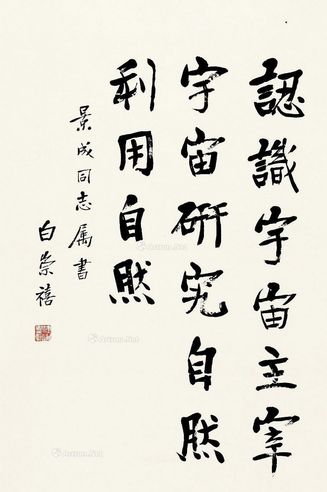 認識宇宙主宰
宇宙研究自然
利用自然
景成同志属書
白崇禧